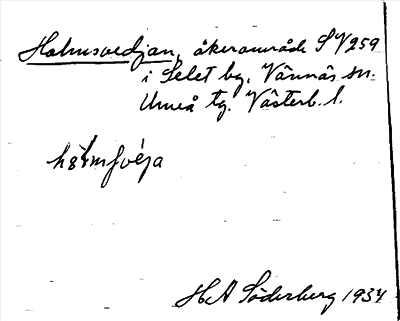 Halmsvedjan, åkerområde SV259
i Selet by, Vännäs sn.
Umeå tg. Västerb. l.
H A Söderberg 1934